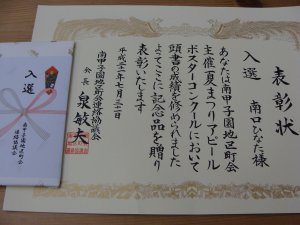 表彰状
入選 南口ひなた様
あなたは南甲子園地区町会
主催「夏まつりアピール
ポスターコンクールにおいて
頭書の成績を修められました
よってここに記念品を贈り
表彰いたします
平成二十一年七月三十一日
南甲子園地区町会連絡協議会
会長 泉敏夫
入選
南甲子園地区町会
連絡協議会